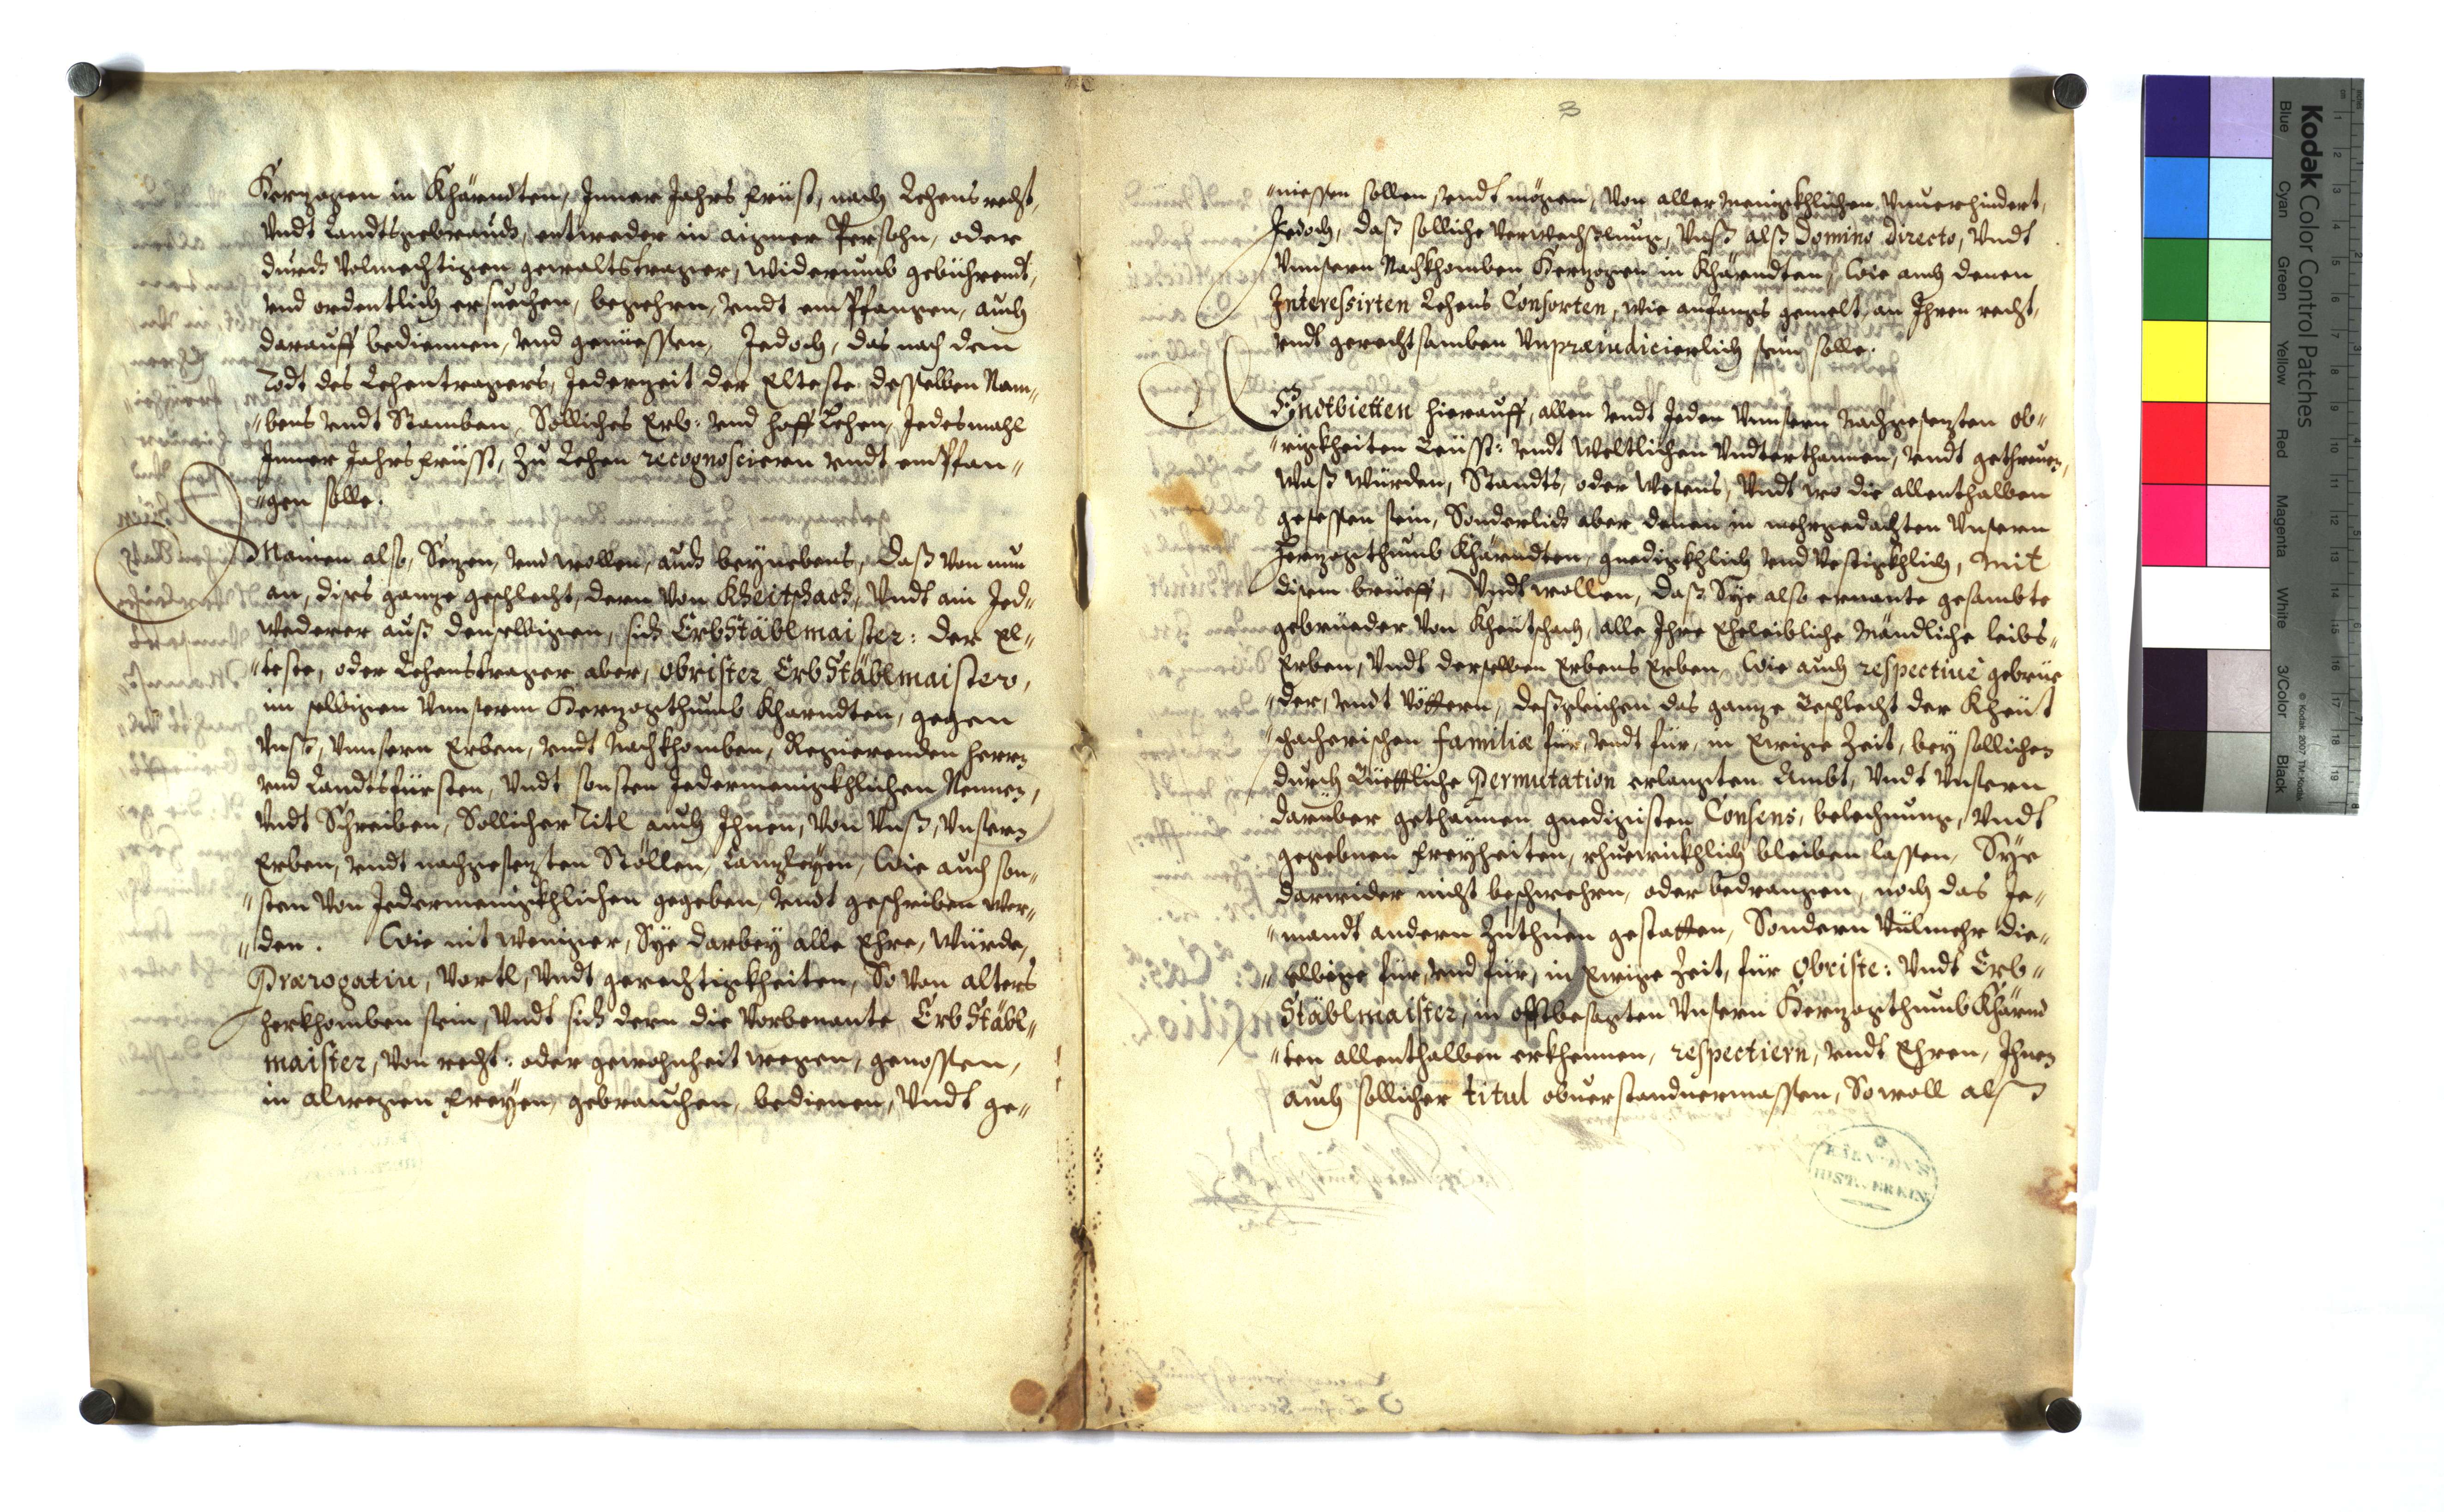 Herzogen in Khärndten, Inner Jahrs früst, nach Lehens recht,
Vndt Landtsgebrauch, entweder in aigner Persohn, oder
durch Volmechtigen gewaltstrager, widerumb gebührendt,
vnd ordentlich ersuechen, begehrn, vndt empfangen, auch
darauff bediennen, vnd genüessen, Jedoch, das nach dem
Todt des Lehentragers, Jederzeit der Elteste desselben Nam-
"bens vndt Stamben, Solliches Erb: vnd hoff Lehen, Jedesmahl
Inner Jahrs früsst, Zu Lehen recognosciern vndt empfan"
"gen solle.
Mainen also, Sezen, vnd wollen, auch beynebens, daß von nun
an, dises ganze geschlecht, deren Von Kheitschach, Vndt ain Jed"
wederer auß denselbigen, sich ErbStäblmaister: der El"
"teste, oder Lehenstrager aber, Obrister ErbStäblmaister,
im selbigen Vnnserm Herzogthumb Kharndten, gegen
Vnß, Vnnsern Erben, vndt Nachkhomben, Regierenden Herrn
vnd Landtsfürsten, Vndt sonsten Jedermenigkhlichen Nennen,
Vndt Schreiben, Sollicher Titl auch Ihnen, Von Vnß, Vnsern
Erben, vndt nachgesezten Stöllen, Canzleyen, Wie auch son"
"sten Von Jedermenigkhlichen gegeben, vndt geschriben wer"
"den. Wie nit weniger, Sye darbey alle Ehre, Würde,
Prærogatiu, Vortl, Vndt gerechtigkheiten, So Von alters
herkhomben sein, Vndt sich deren die Vorbenante ErbStäbl"
maister, Von recht: oder gewohnheit wegen, genossen,
in alwegen freyen, gebrauchen, bedienen, Vndt ge"
3
"niessen sollen, vndt mögen, Von allermenigkhlichen Vnuerhindert,
Jedoch, daß solliche Verwechßlung, Vnß alß Domino directo, Vndt
Vnnsern Nachkhomben Herzogen in Khärndten, Wie auch denen
Interessirten Lehens Consorten, wie anfangs gemelt, an Ihren recht,
vndt gerechtsamben Vnpræiudicierlich sein solle.
Endtbietten hierauff, allen vndt Jeden Vnnsern Nachgesezten ob"
"rigkheiten Geistl: vndt Weltlichen Vndterthannen, vndt gethreuen,
Waß Würden, Standts, oder Wesens, Vndt wo die allenthalben
gesessen sein, Sonderlich aber denen in mehrgedachten Vnsern
Herzogthumb Khärndten, gnedigkhlich vnd Vestigkhlich, mit
disem brieff, Vndt wollen, daß Sye also ernante gesambte
gebrüeder Von Kheutschach, alle Ihre Eheleibliche Mändliche leibs"
Erben, Vndt derselben Erbens Erben, Wie auch respectiuè gebrüe
"der, vndt Vöttern, deßgleichen das ganze Geschlecht der Kheut
"schacherischen familiæ für, vndt für, in Ewige Zeit, bey sollichen
durch Güettliche Permutation erlangten Ambt, Vndt Vnsern
darüber gethannen gnedigisten Consens, belechnung, Vndt
gegebnen freyheiten, rhuewickhlich bleiben lassen, Sye
darwider nicht beschwehren, oder bedrangen, noch das Je"
"mandt andern Zuthuen gestatten, Sondern Vülmehr die"
"selbige für, vnd für, in Ewige Zeit, für Obriste: Vndt Erb"
Stäblmaister, in offtbesagten Vnsern Herzogthumb Khärnd
"ten allenthalben erkhennen, respectiern, vndt Ehren, Ihnen
auch sollicher titul obuerstandnermassen, Sowoll alß